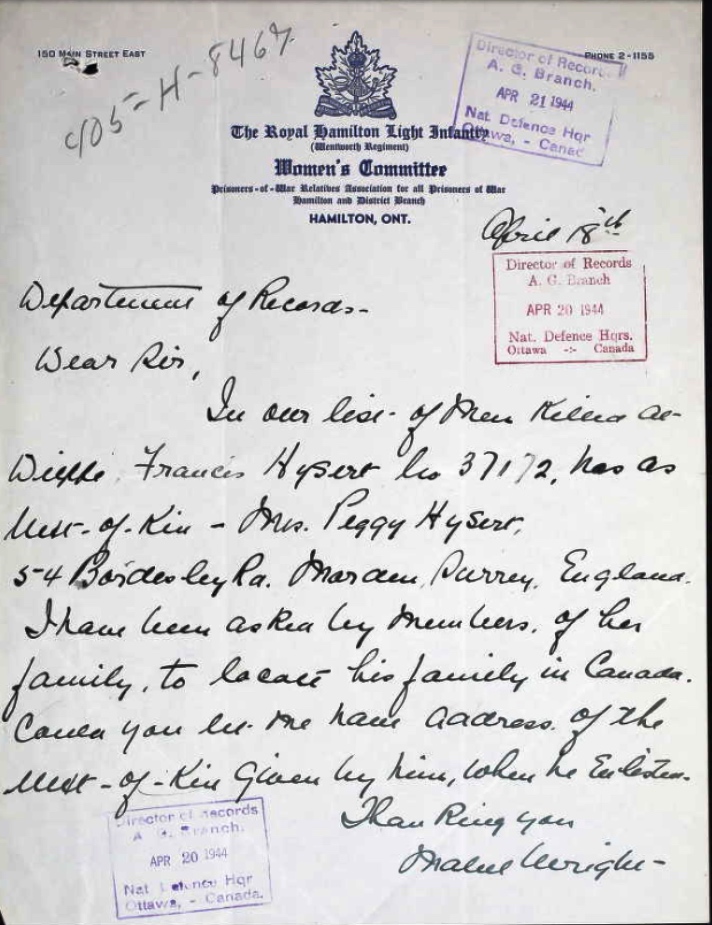 150 MAIN STREET EAST
PHONE 2-1155
405-H-8467
The Royal Hamilton Light Infantry
(Wentworth Regiment)
Women's Committee
Prisoners-of-War Relatives Association for all Prisoners of War
Hamilton and District Branch
HAMILTON, ONT.
Director of Records
A. G. Branch.
APR 21 1944
Nat Defence Hqr
Ottawa, - Canad
April 18th
Director of Records
A. G. Branch
APR 20 1944
Nat. Defence Hqrs.
Ottawa -:- Canada
Department of Records-
Dear Sir,
In our list of Men Killed at
Dieppe, Francis Hysert No 37172, has as
Next-of-Kin - Mrs. Peggy Hysert,
54 Bordesley Rd. Morden, Surrey, England.
I have been asked by members, of her
family, to locate his family in Canada.
Could you let me have address of the
Next-of-Kin Given by him, when he Enlisted.
Thanking you
Mabel Wright-
Director of Records
A. G. Branch.
APR 20 1944
Nat Defence Hqr
Ottawa, - Canada.